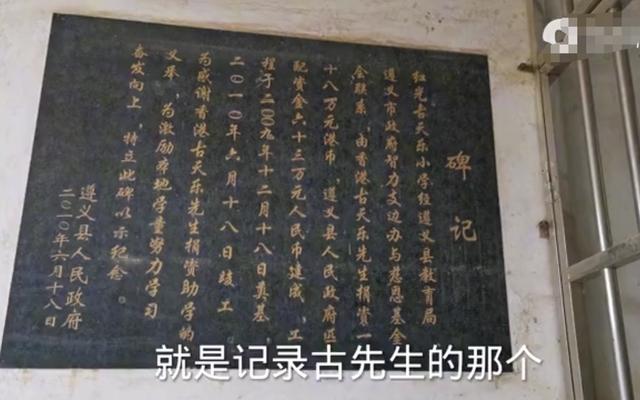 碑记
红光古天乐小学经遵义县教育局
遵义市政府智力支边办与慈恩基金
会联系，由香港古天乐先生捐资一
十八万元港币，遵义县人民政府匹
配资金六十三万元人民币建成，工
程于二00九年十二月十八日奠基，
二0一0年六月十八日竣工。
为感谢香港古天乐先生捐资助学的
义举，为激励地学童努力学习
奋发向上，特立此碑以示纪念。
遵义县人民政府
二0一0年六月十八日
就是记录古先生的那个